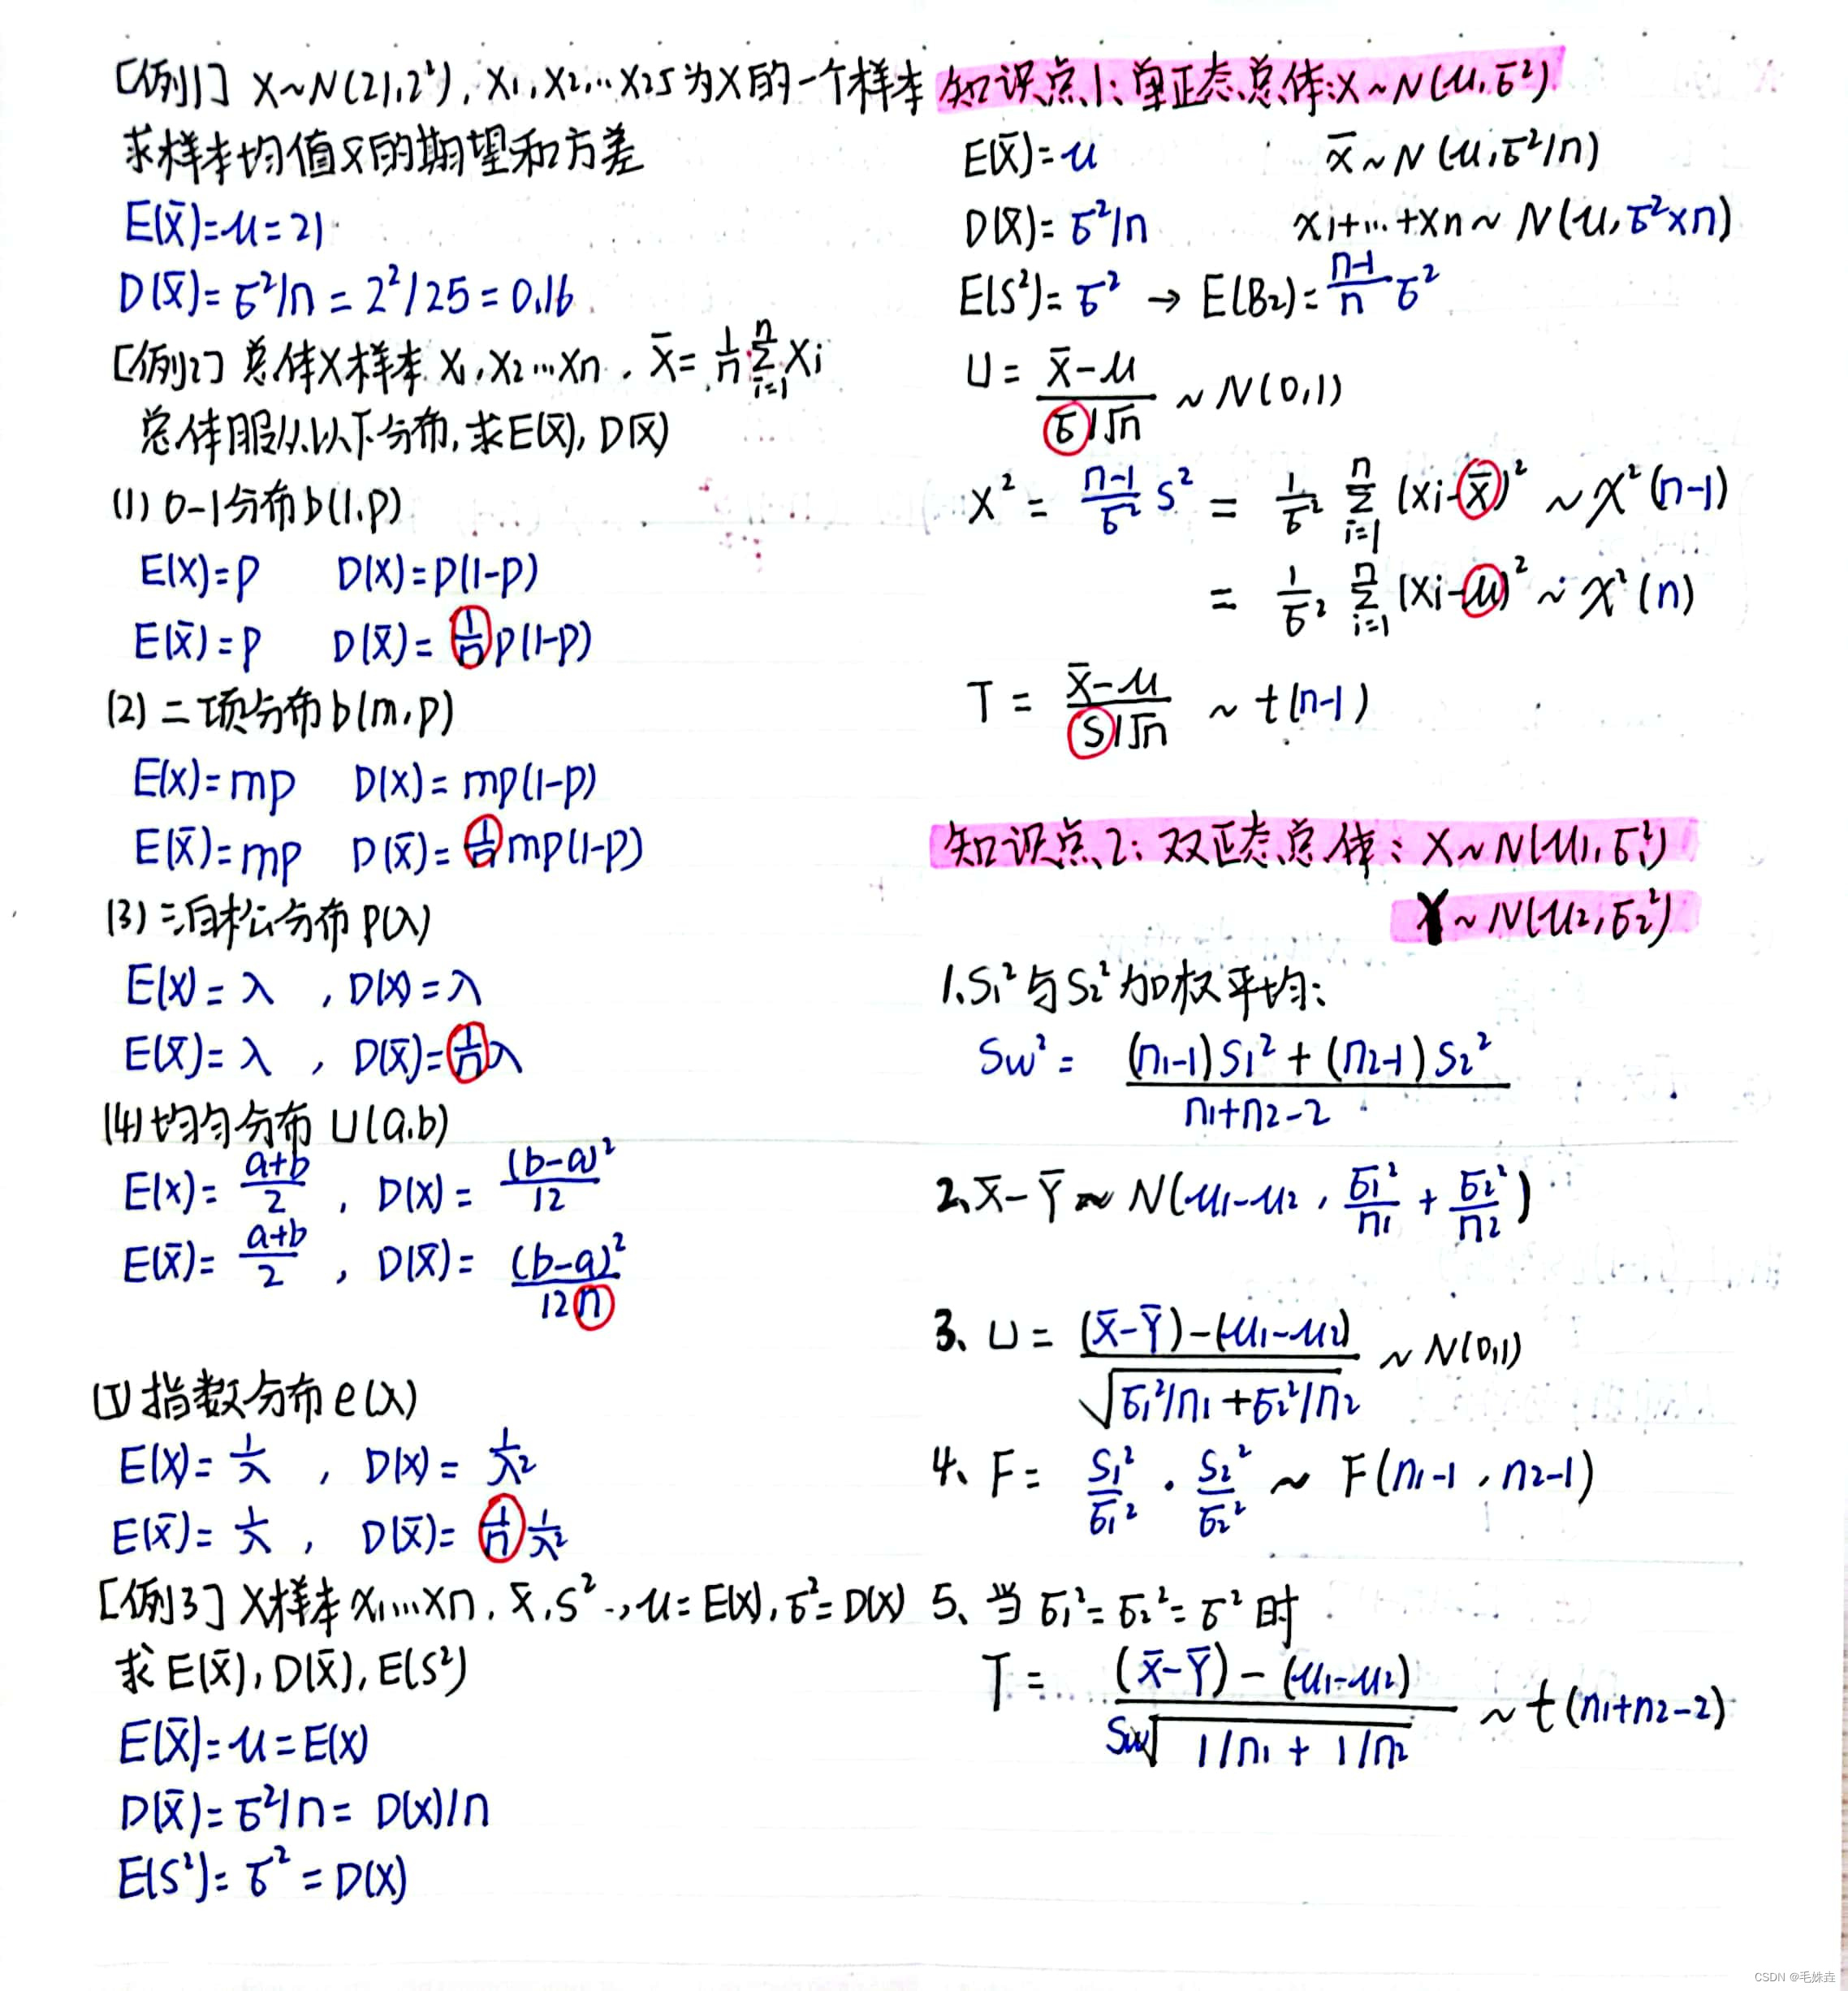 [例1] X~N(21,2²), X₁,X₂...X₂₅为X的一个样本
求样本均值X̄的期望和方差
E(X̄)=μ=21
D(X̄)=σ²/n=2²/25=0.16
[例2] 总体X样本 X₁,X₂...Xn, X̄=1/n Σᵢ₌₁ⁿ Xi
总体服从以下分布,求E(X̄), D(X̄)
(1) 0-1分布b(1,p)
E(X)=p D(X)=p(1-p)
E(X̄)=p D(X̄)=1/n p(1-p)
(2) 二项分布b(m,p)
E(X)=mp D(X)=mp(1-p)
E(X̄)=mp D(X̄)=1/n mp(1-p)
(3) 泊松分布 p(λ)
E(X)=λ , D(X)=λ
E(X̄)=λ , D(X̄)=1/n λ
(4) 均匀分布 U(a,b)
E(X)=(a+b)/2 , D(X)=(b-a)²/12
E(X̄)=(a+b)/2 , D(X̄)=(b-a)²/12n
(5) 指数分布 e(λ)
E(X)=1/λ , D(X)=1/λ²
E(X̄)=1/λ , D(X̄)=1/n 1/λ²
[例3] X样本 X₁...Xn, X̄,S², μ=E(X), σ²=D(X)
求E(X̄), D(X̄), E(S²)
E(X̄)=μ=E(X)
D(X̄)=σ²/n=D(X)/n
E(S²)=σ²=D(X)
知识点1:单正态总体:X~N(μ,σ²)
E(X̄)=μ X̄~N(μ,σ²/n)
D(X̄)=σ²/n X₁+...+Xn~N(μ,σ²×n)
E(S²)=σ² → E(B₂)=(n-1)/n σ²
U=(X̄-μ)/(σ/√n) ~N(0,1)
X²=(n-1)/σ² S²=1/σ² Σᵢ₌₁ⁿ (Xi-X̄)² ~χ²(n-1)
=1/σ² Σᵢ₌₁ⁿ (Xi-μ)² ~χ²(n)
T=(X̄-μ)/(S/√n) ~t(n-1)
知识点2:双正态总体:X~N(μ₁,σ₁²)
Y~N(μ₂,σ₂²)
1.S₁²与S₂²加权平均:
Sw²=((n₁-1)S₁²+(n₂-1)S₂²)/(n₁+n₂-2)
2、X̄-Ȳ~N(μ₁-μ₂,σ₁²/n₁+σ₂²/n₂)
3、U=((X̄-Ȳ)-(μ₁-μ₂))/√(σ₁²/n₁+σ₂²/n₂) ~N(0,1)
4、F=S₁²/σ₁²·S₂²/σ₂² ~F(n₁-1,n₂-1)
5、当σ₁²=σ₂²=σ²时
T=((X̄-Ȳ)-(μ₁-μ₂))/(Sw√(1/n₁+1/n₂)) ~t(n₁+n₂-2)
CSDN @毛姝垚